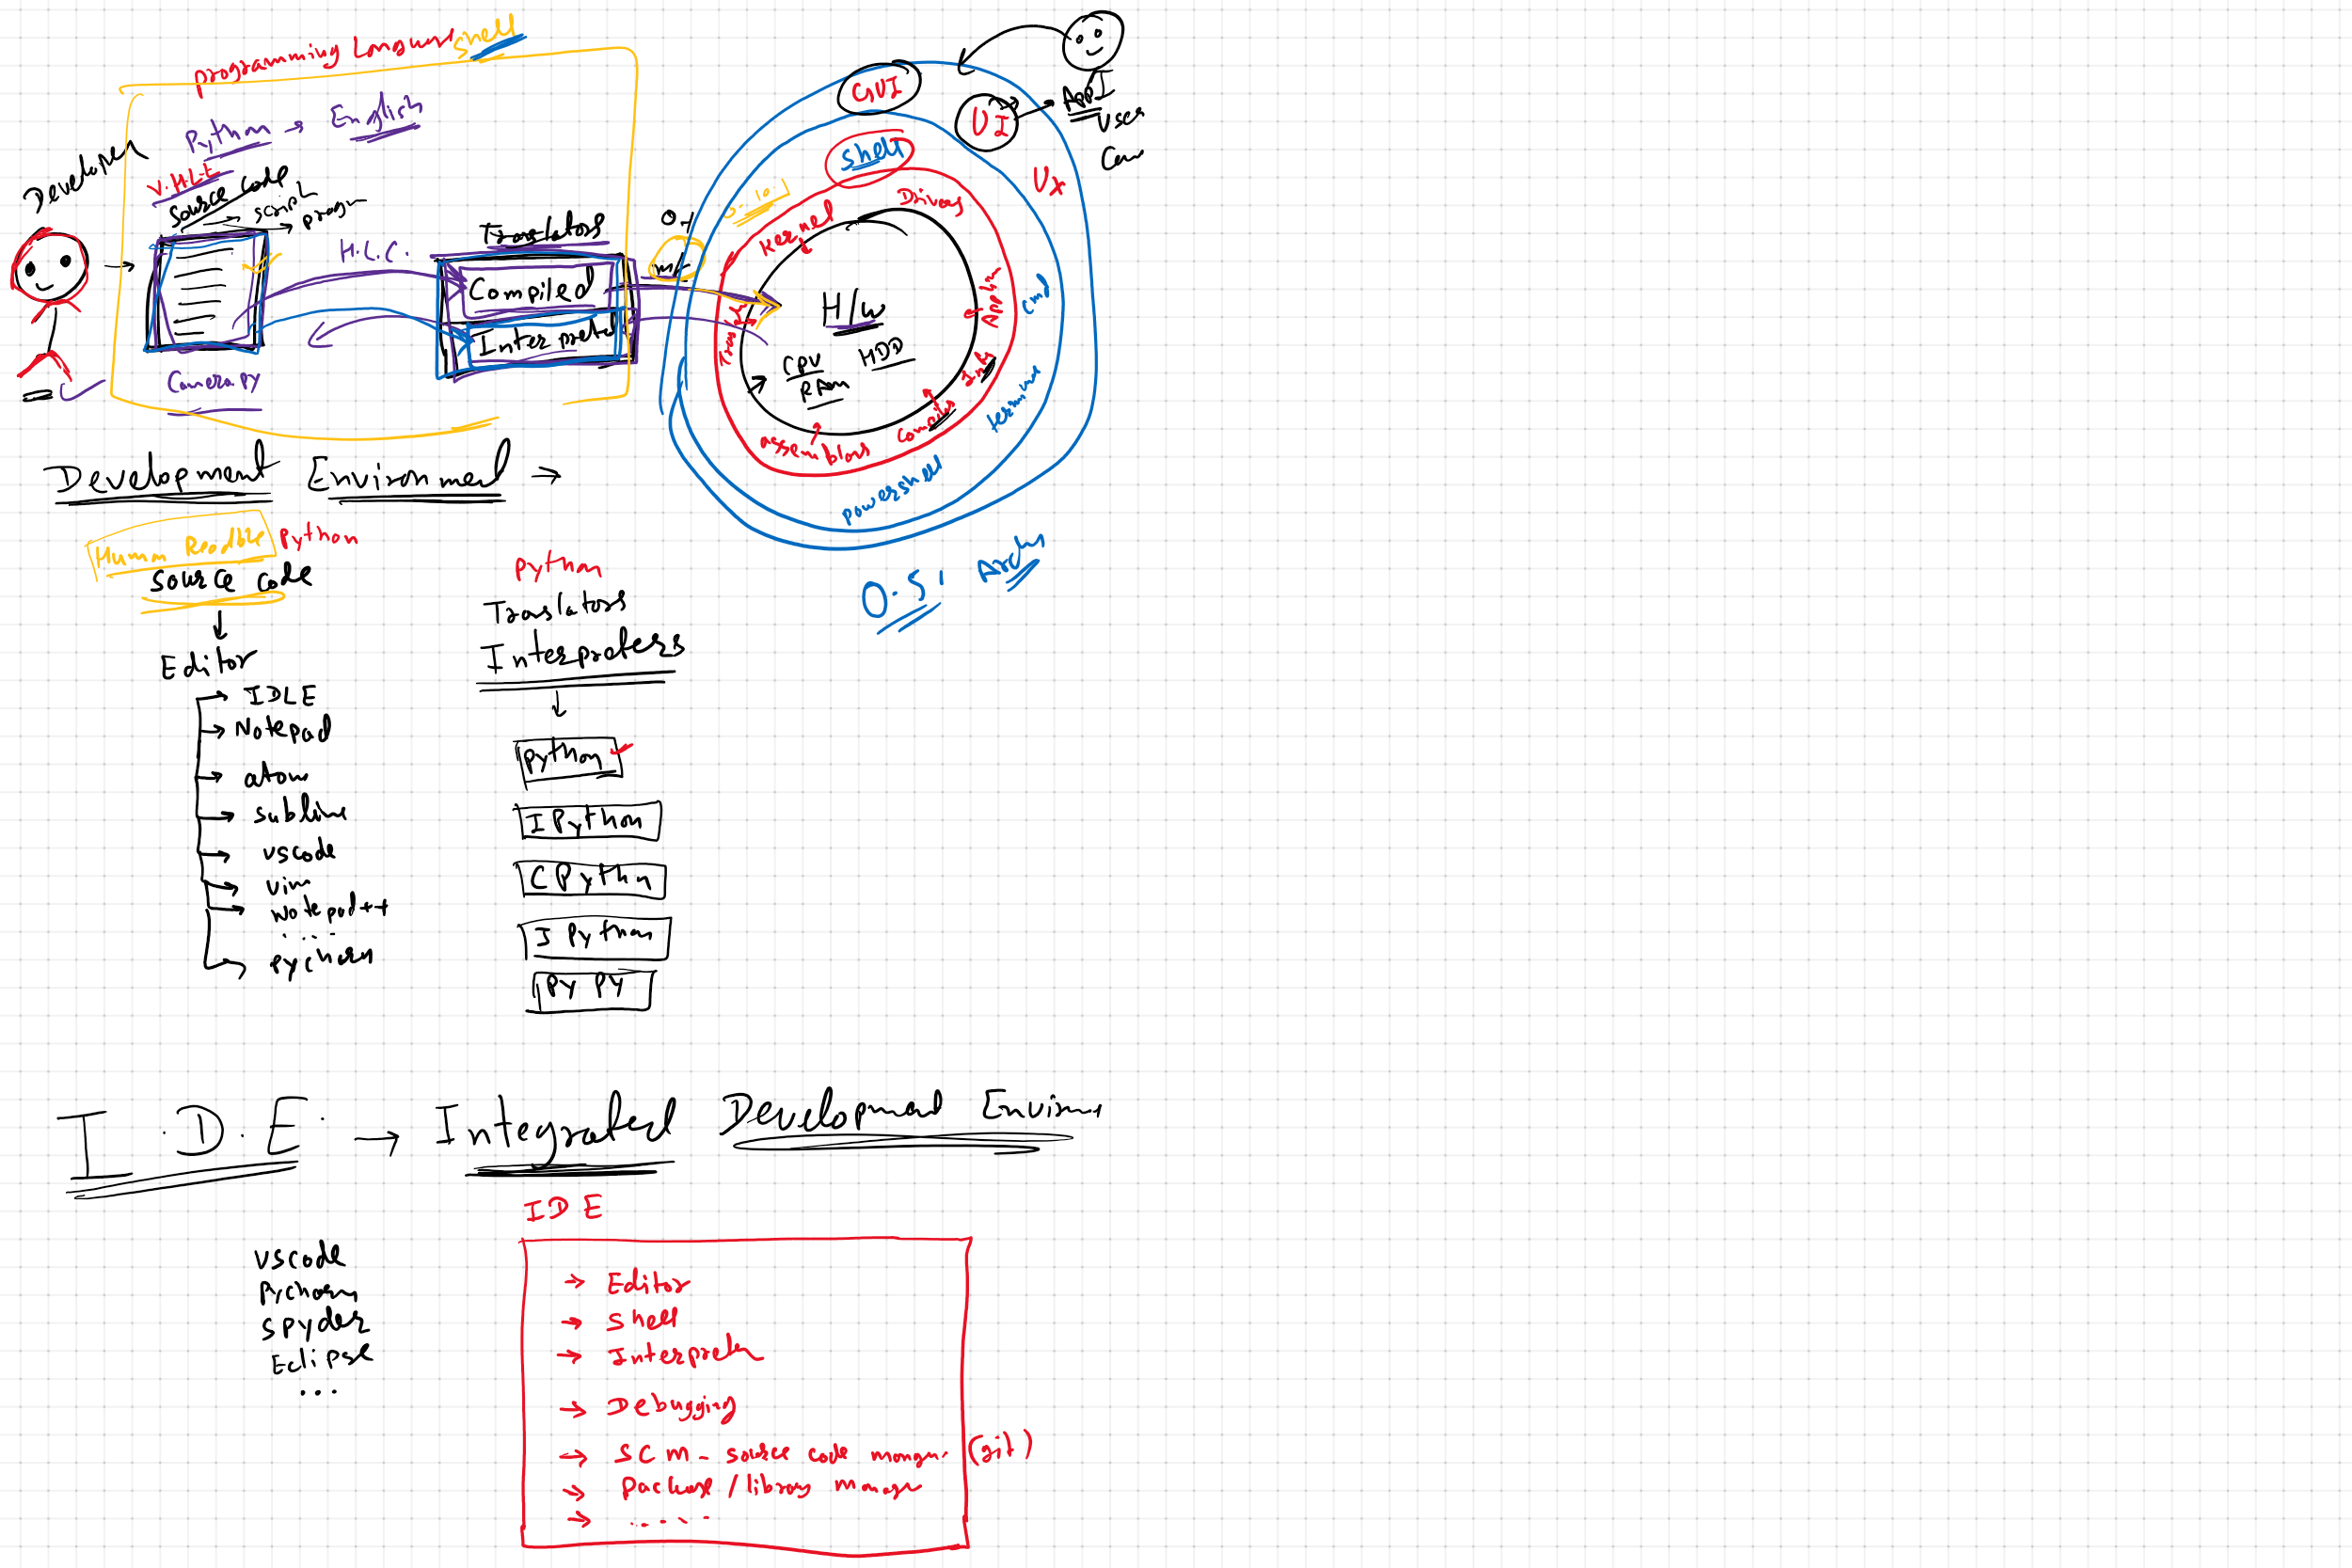 programming Language shell
Python → English
Developer
V.H.L.L
Source code
script
progm
H.L.C.
Translators
Compiled
Interpreted
Camera.py
0-1
GUI
UI
App
User
UX
Shell
Kernel
Drivers
H/W
CPU
HDD
RAM
cmd
terminal
assemblors
powershell
O.S. Arch
Development Environment →
Human Readble Python
Source code
Editor
IDLE
Notepad
atom
sublime
vscode
vim
Notepad++
.....
pycharm
Python
Translators
Interpreters
python
IPython
CPythn
I Python
PY PY
I.D.E. → Integrated Development Environ
IDE
vscode
Pycharm
SPyder
Eclipse
...
→ Editor
→ Shell
→ Interpreter
→ Debugging
→ SCM - source code mangr. (git)
→ Package/library manager
→ .....